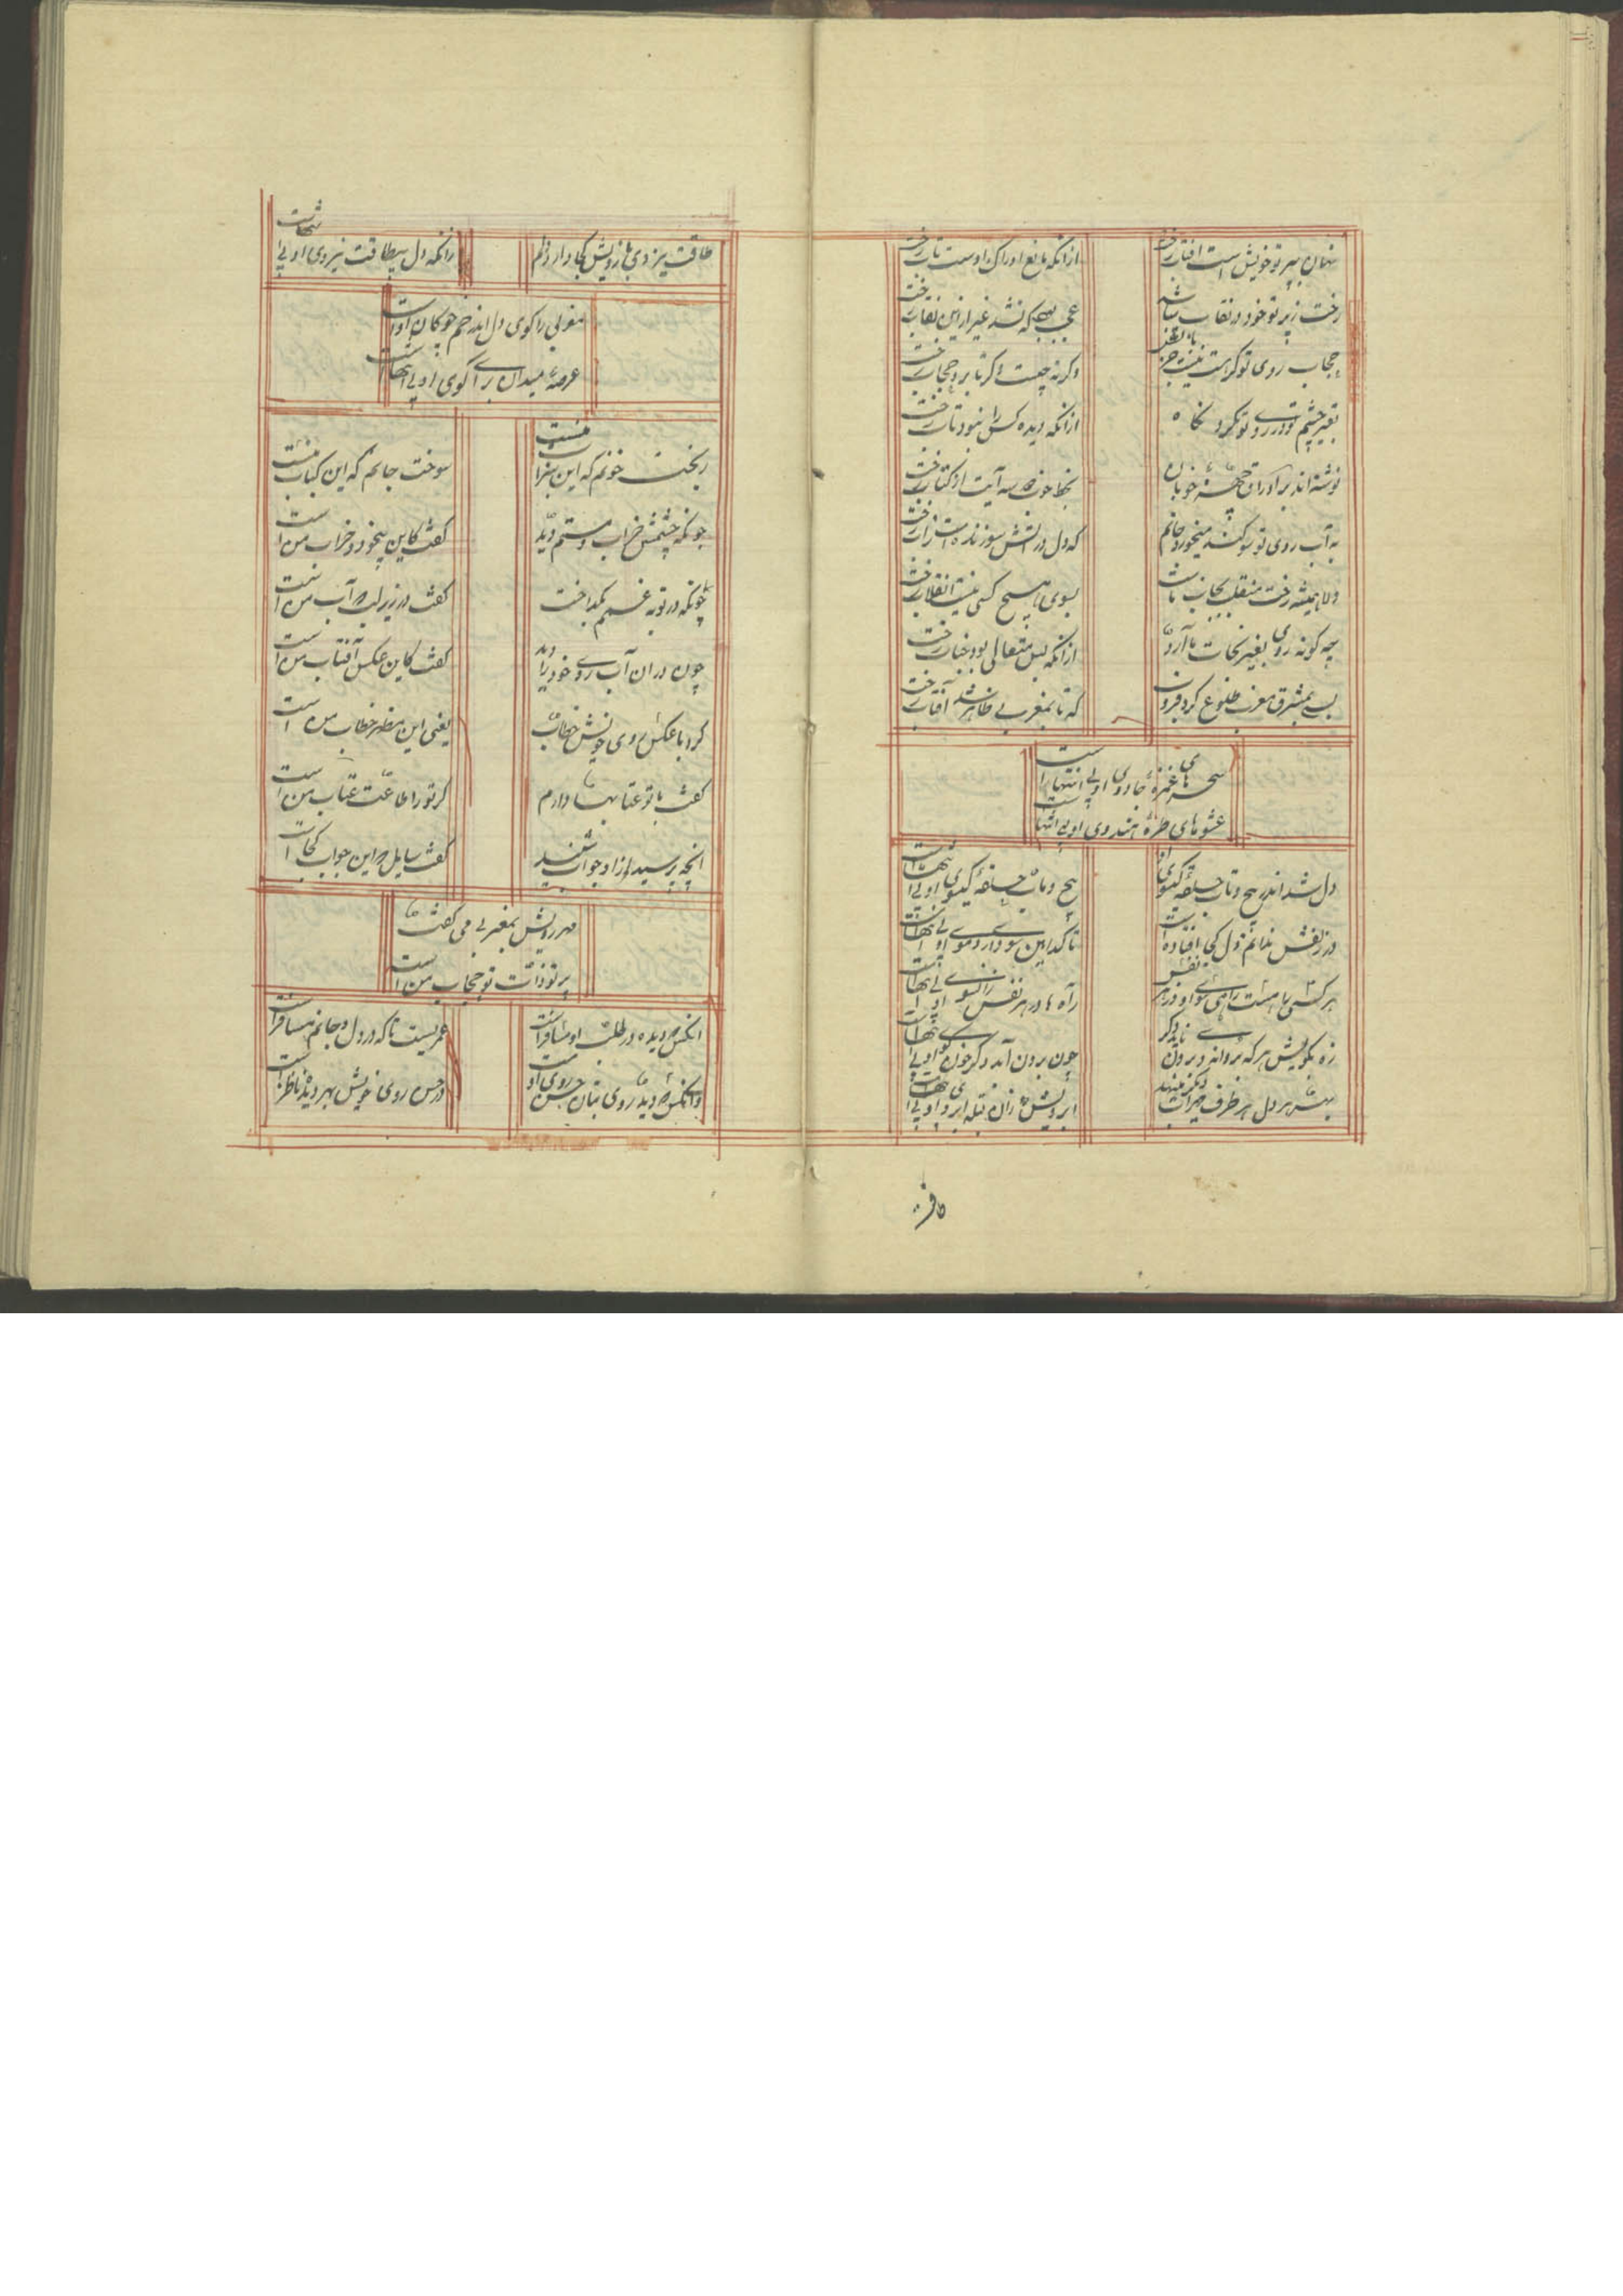 نهان به پرتو خویش است افتاب رخت
ازانکه مانع ادراک اوست تاب رخت
رخت ز پرتو خود در نقاب میباشد
عجب که نشد غیر ازین نقاب رخت
حجاب روی تو گر هست نیست جز
وگرنه چیست دگر تا بود حجاب رخت
بغیر چشم تو در روی تو نکرد نگاه
ازانکه دیده کس را نبود تاب رخت
نوشته اند بر اوراق چهره خوبان
بخط خوب دو سه آیت از کتاب رخت
به آب روی تو سوگند میخورد جانم
که دل در آتش سوزنده است ز آب رخت
دلا همیشه رخت منقلب بجانب ماست
بسوی هیچ کسی نیست انقلاب رخت
چه گونه روی بغیر نجات ما آرد
ازانکه بس متعالی بود جناب رخت
بسی بمشرق و مغرب طلوع کرد و فرو
که تا بمغربی ظاهر شد آفتاب رخت
سحرهای غمزه جادوی او بی انتهاست
عشوهای طره هندوی او بی انتهاست
دل شد اندر پیچ و تاب حلقه گیسوی او
پیچ و تاب حلقه گیسوی او بی انتهاست
در زلفش ندانم دل کجا افتاده است
تا کدامین سو دارد موی او بی انتهاست
هر کسی را هست راهی سوی او در هر نفس
راه ها در هر نفس زانسوی او بی انتهاست
زه بکویش هر که برد اندر برون ناید دگر
چون برون آید دگر چون کوی او بی انتهاست
پیش هر دل هر طرف محراب دیگر مینهد
ابرویش زان قبله ابروی او بی انتهاست
کافر
طاقت نیروی بازویش کجا دارد دلم
زانکه دل بیطاقت نیروی او بی انتهاست
مغربی را گوی دل اندر خم چوگان اوست
عرصه میدان برای گوی او بی انتهاست
ریخت خونم که این شراب منست
سوخت جانم که این کباب منست
چونکه چشمش خراب و مستم دید
گفت کاین بیخود و خراب من است
چونکه در بوته غمم بگداخت
گفت در زیر لب که آب من است
چون در ان آب روی خود را دید
گفت کاین عکس آفتاب من است
کرد با عکس روی خویش خطاب
یعنی این مظهر خطاب من است
گفت با تو عتابها دارم
گر تو را طاقت عتاب من است
انچه پرسید ازاو جواب شنید
گفت سایل که این جواب کجاست
مهر رویش بمغربی می گفت
پرتو ذات تو حجاب من است
انکس که دیده در طلب او مسافر است
عمریست تا که در دل و جانم مسافر است
وانکس که دید روی بتان حسن روی او
در حسن روی خویش بهر دیده ناظر است